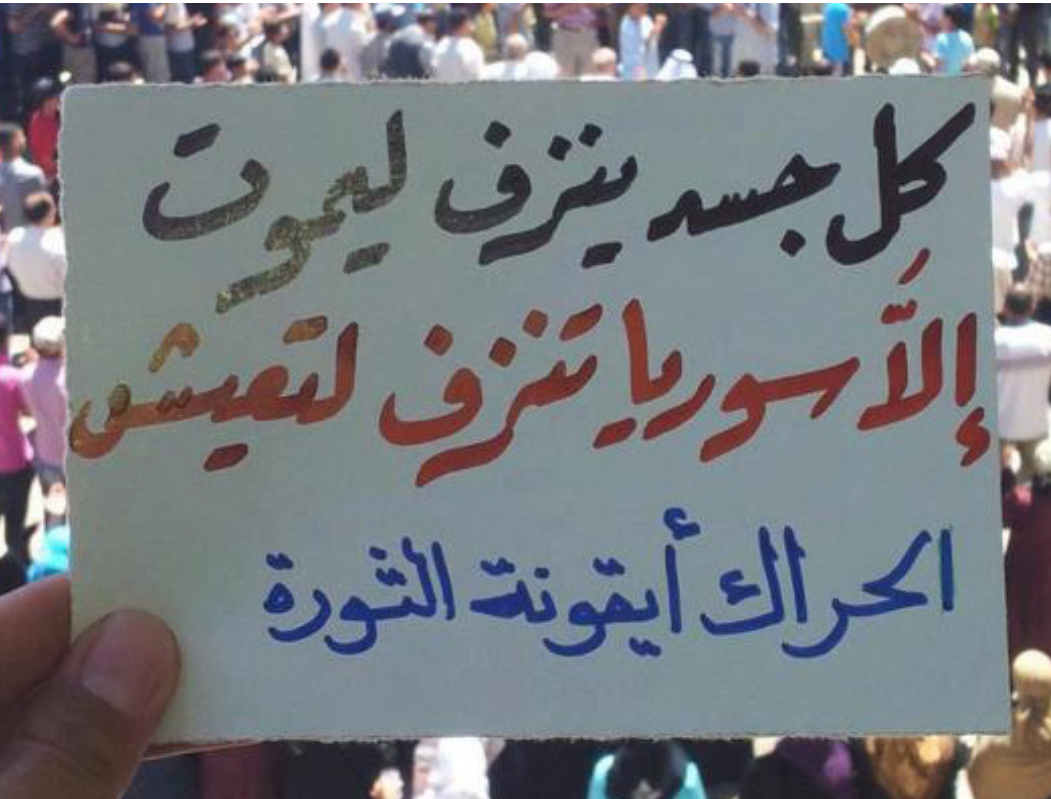 كل جسد ينزف ليموت
إلاَّ سوريا تنزف لتعيش
الحراك أيقونة الثورة